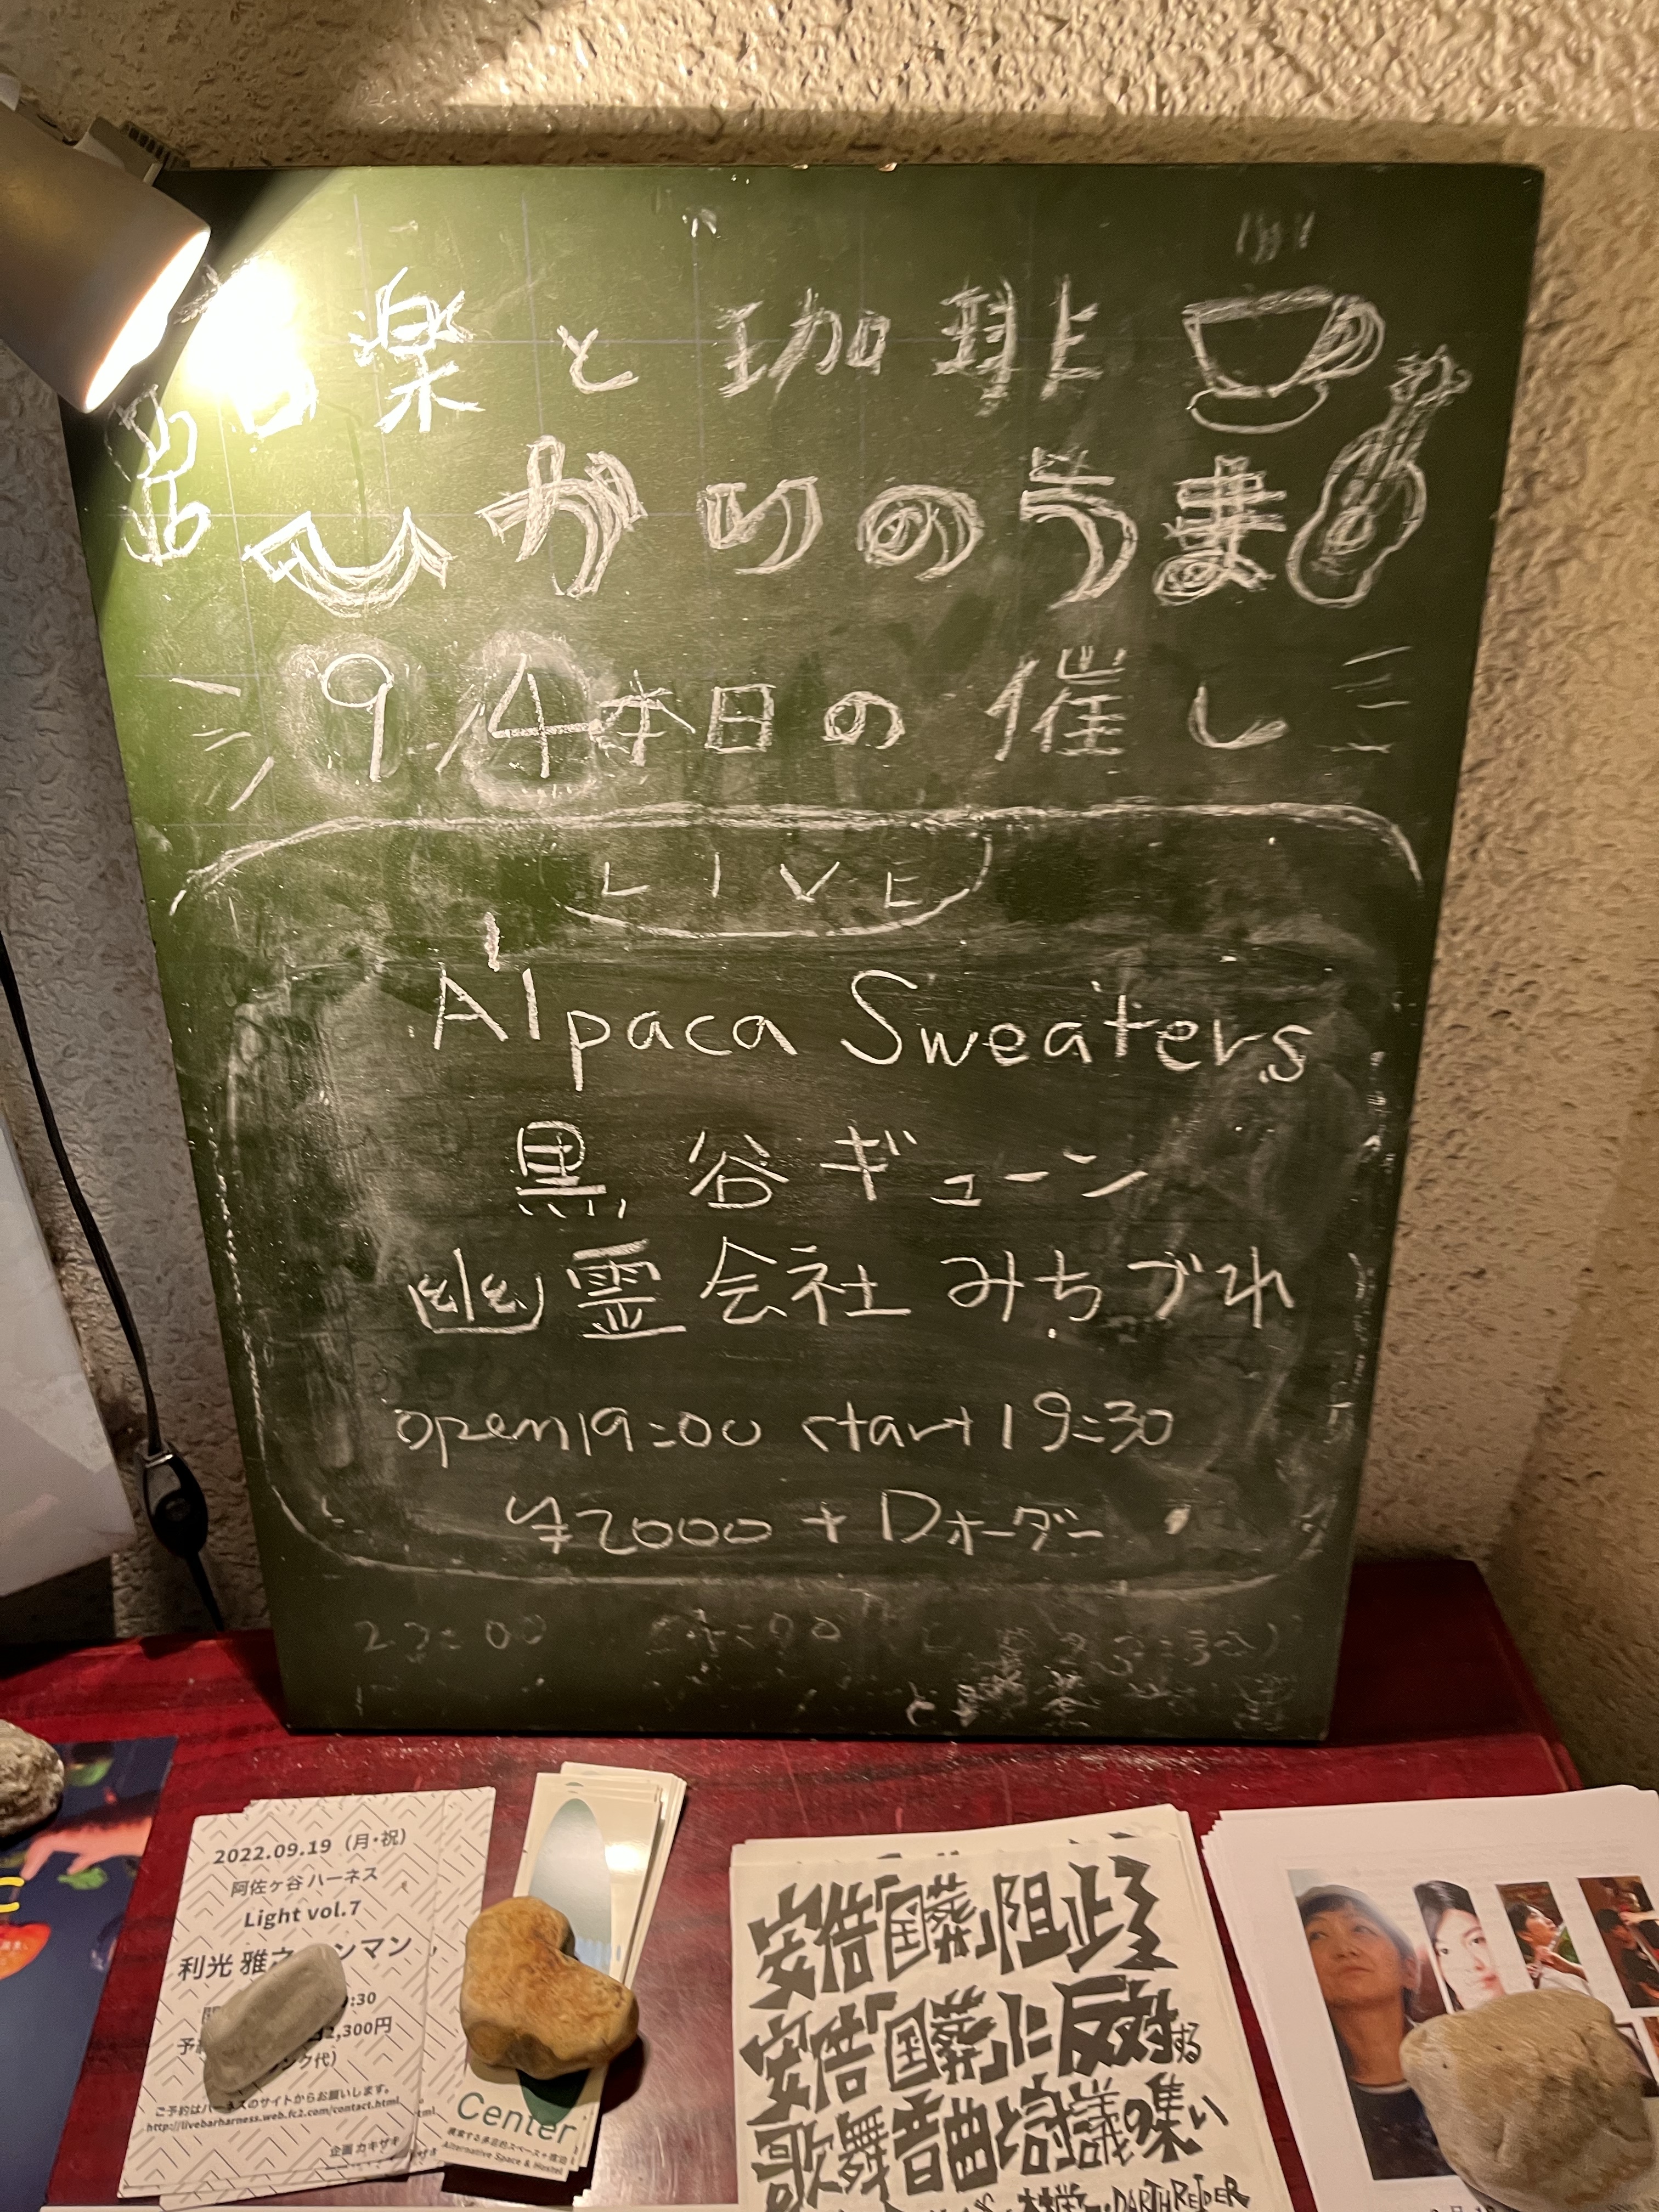 音楽と珈琲
ひかりのうま
9/4 本日の催し
LIVE
Alpaca Sweaters
黒谷ギューン
幽霊会社みちづれ
open19:00 start19:30
¥2000 + Dオーダー
2022.09.19（月・祝）
阿佐ヶ谷 ハーネス
Light vol.7
利光 雅之 ンマン
:30
2,300円
ンク代）
ご予約はハーネスのサイトからお願いします。
http://livebarharness.web.fc2.com/contact.html
企画 カキザキ
Center
Alternative Space & Hostel
安倍「国葬」阻止!
安倍「国葬」に反対する
歌舞音曲と討議の集い
DARTHREIDER